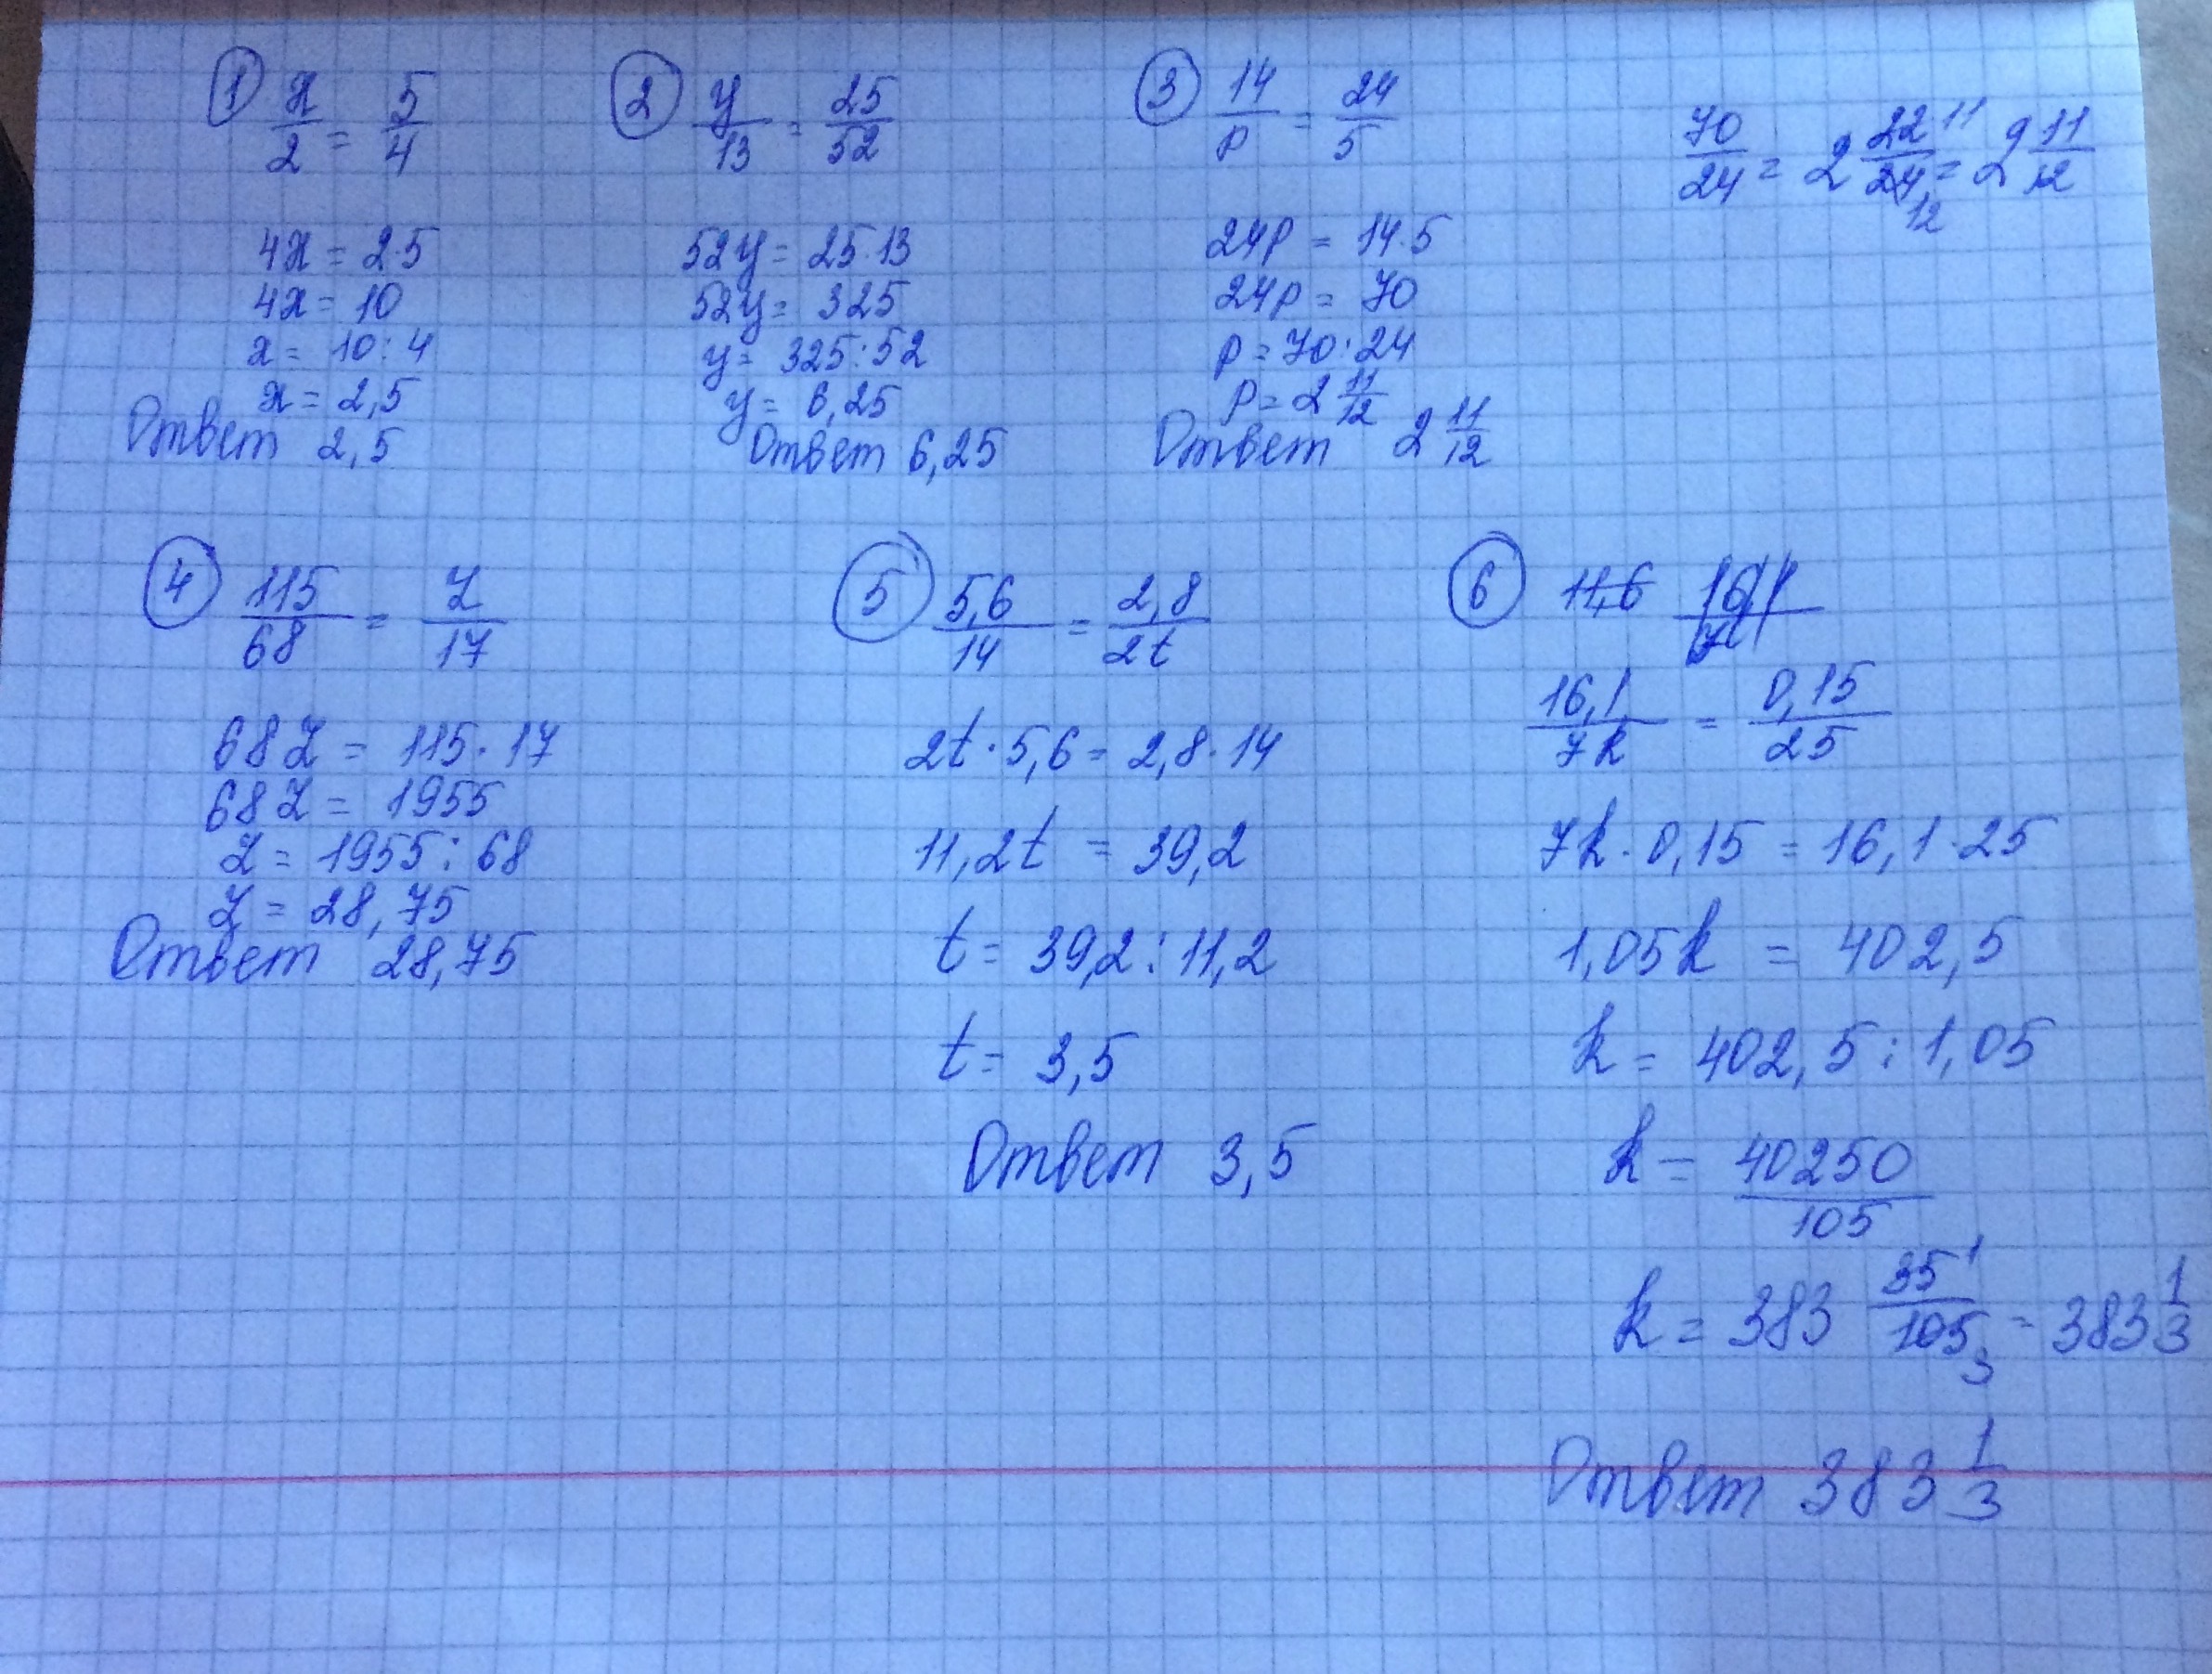 ① x/2 = 5/4
4x = 2·5
4x = 10
x = 10:4
x = 2,5
Ответ 2,5
② y/13 = 25/52
52y = 25·13
52y = 325
y = 325:52
y = 6,25
Ответ 6,25
③ 14/p = 24/5
24p = 14·5
24p = 70
p = 70:24
p = 2 11/12
Ответ 2 11/12
70/24 = 2 22/24 11 12 = 2 11/12
④ 115/68 = z/17
68z = 115·17
68z = 1955
z = 1955:68
z = 28,75
Ответ 28,75
⑤ 5,6/14 = 2,8/2t
2t·5,6 = 2,8·14
11,2t = 39,2
t = 39,2:11,2
t = 3,5
Ответ 3,5
⑥ 11,6
16,1/7k = 0,15/25
7k·0,15 = 16,1·25
1,05k = 402,5
k = 402,5:1,05
k = 40250/105
k = 383 35/105 1 3 = 383 1/3
Ответ 383 1/3